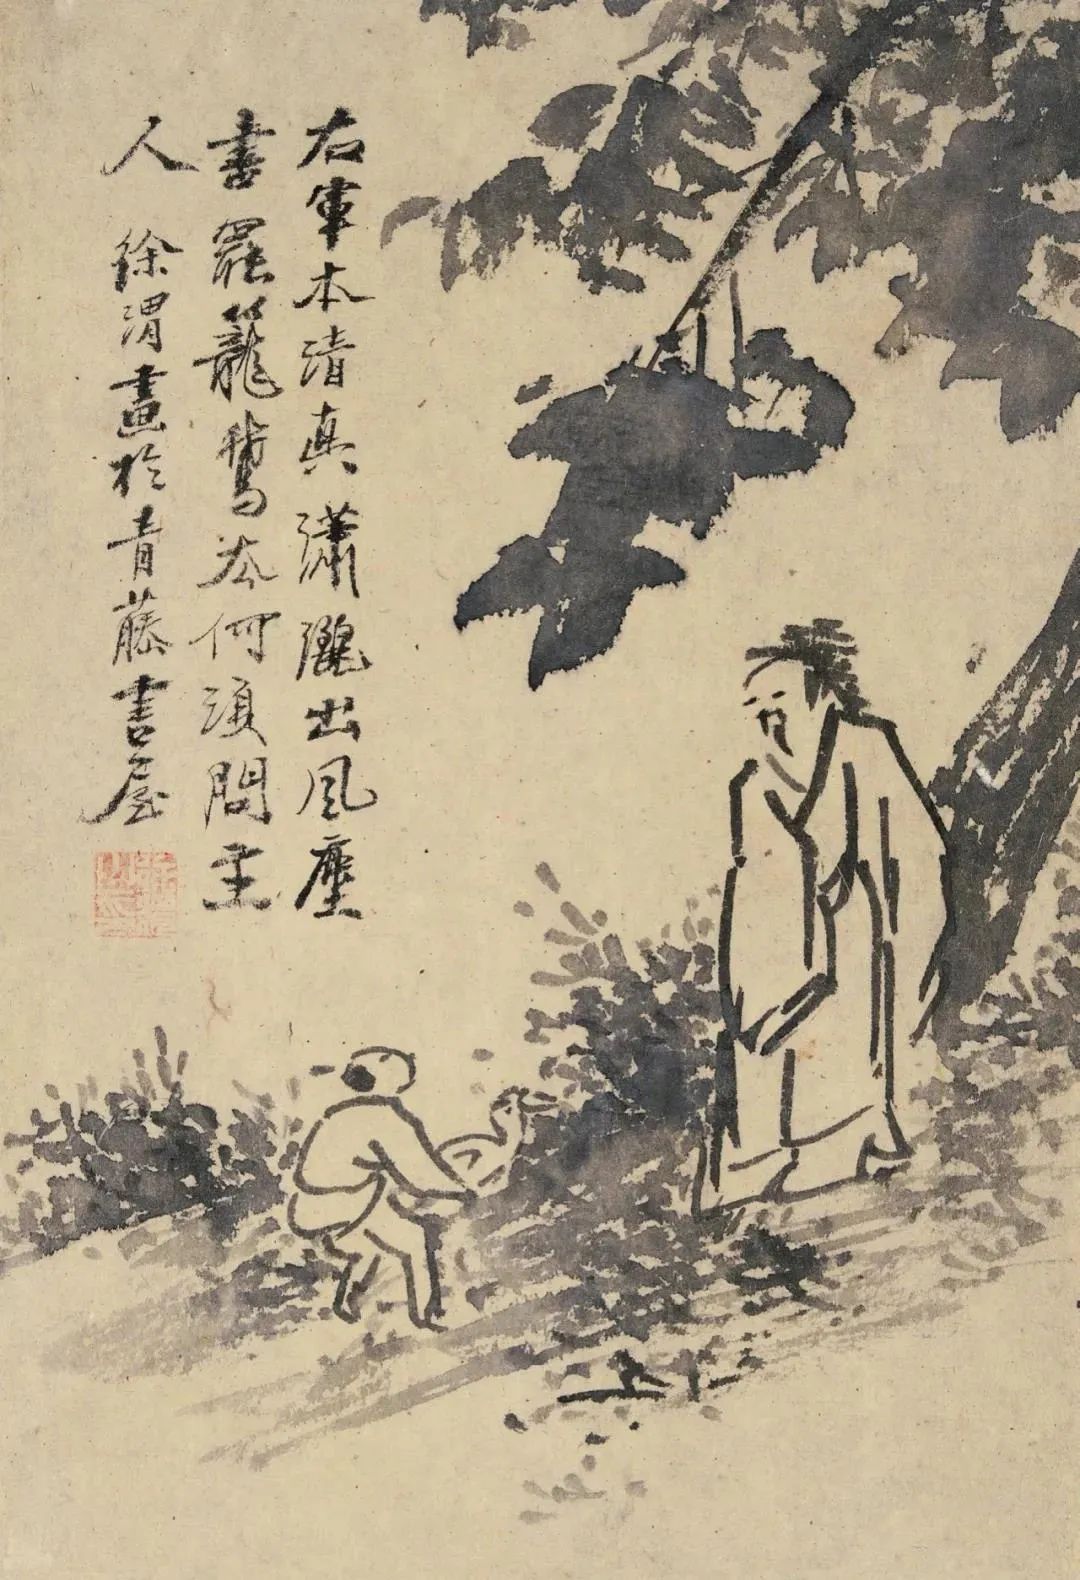 右軍本清真瀟灑出風塵
書罷籠鵞去何須問主
人 徐渭畫於青藤書屋